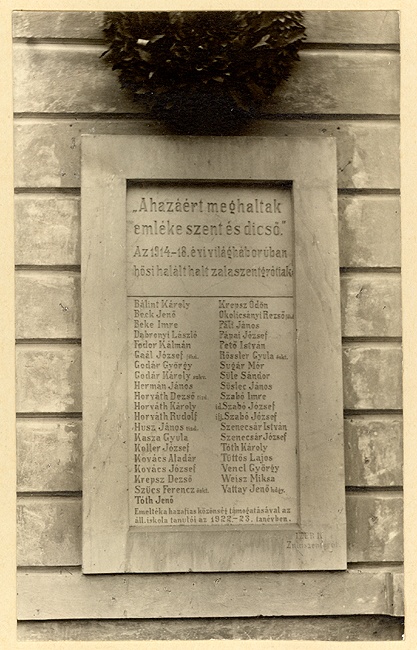 „A hazáért meghaltak
emléke szent és dicső."
Az 1914-18. évi világháborúban
hősi halált halt zalaszentgrótiak:
Bálint Károly
Beck Jenő
Beke Imre
Dabronyi László
Fodor Kálmán
Gaál József
Godár György
Godár Károly
Hermán János
Horváth Dezső
Horváth Károly
Horváth Rudolf
Husz János
Kasza Gyula
Koller József
Kovács Aladár
Kovács József
Krepsz Dezső
Szűcs Ferencz
Tóth Jenő
Krepsz Ödön
Okolicsányi Rezső
Páli János
Pápai József
Pető István
Rössler Gyula
Sugár Mór
Süle Sándor
Süslec János
Szabó Imre
id. Szabó József
ifj. Szabó József
Szenecsár István
Szenecsár József
Tóth Károly
Tüttős Lajos
Vencl György
Weisz Miksa
Vattay Jenő
Emeltéka hazafias közönség támogatásával az
áll. iskola tanulói az 1922.-23. tanévben.